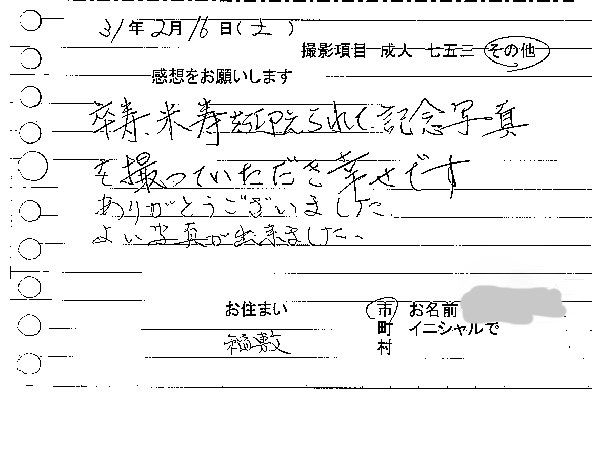 31年2月16日(土)
撮影項目 成人 七五三 その他
感想をお願いします
卒寿、米寿を迎えられて記念写真
を撮っていただき幸せです
ありがとうございました。
よい写真が出来ました。
お住まい
市 お名前
町 イニシャルで
村